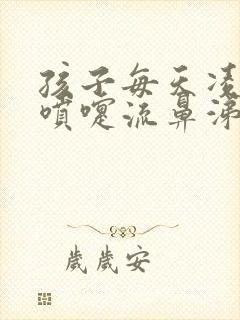 孩子每天凌
噴嚏流鼻涕
歲歲安